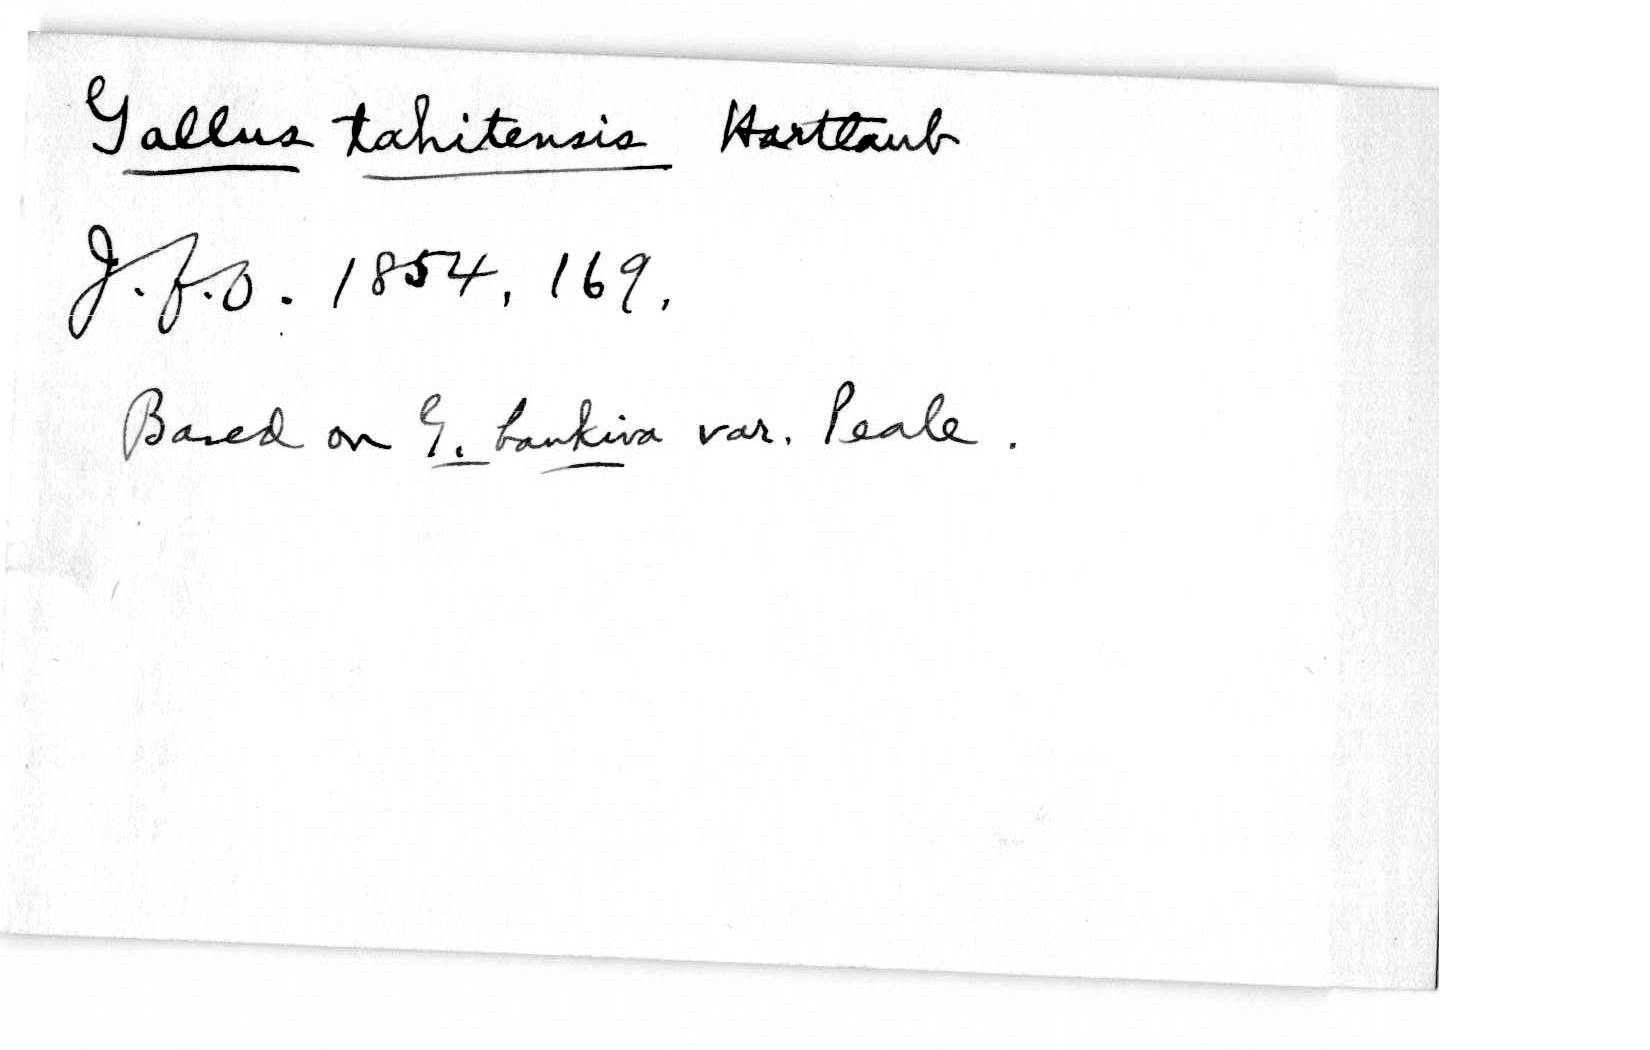 Gallus tahitensis Hartlaub
J.f.O. 1854, 169.
Based on G. bankiva var. Peale.